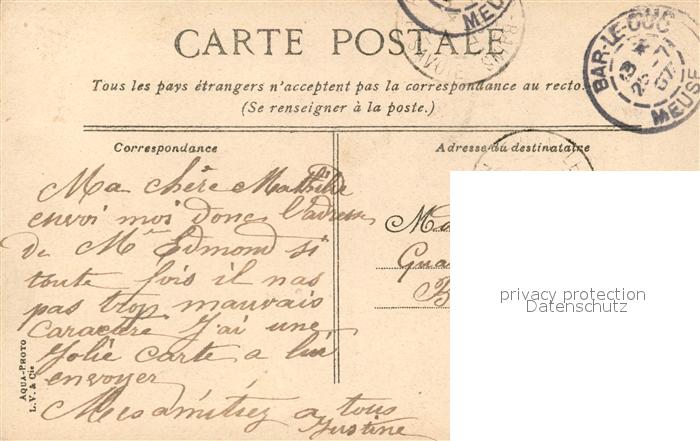 CARTE POSTALE
Tous les pays étrangers n'acceptent pas la correspondance au recto.
(Se renseigner à la poste.)
BAR-LE-DUC
MEUSE
MEUSE
Correspondance
Adresse du destinataire
Ma chère Mathilde
envoi moi donc l'adresse
de Mr Edmond si
toute fois il nas
pas trop mauvais
caractère J'ai une
Jolie carte a lui
envoyer
Mes amitiez a tous
Justine
AQUA-PHOTO
L.V. & Cie
privacy protection
Datenschutz